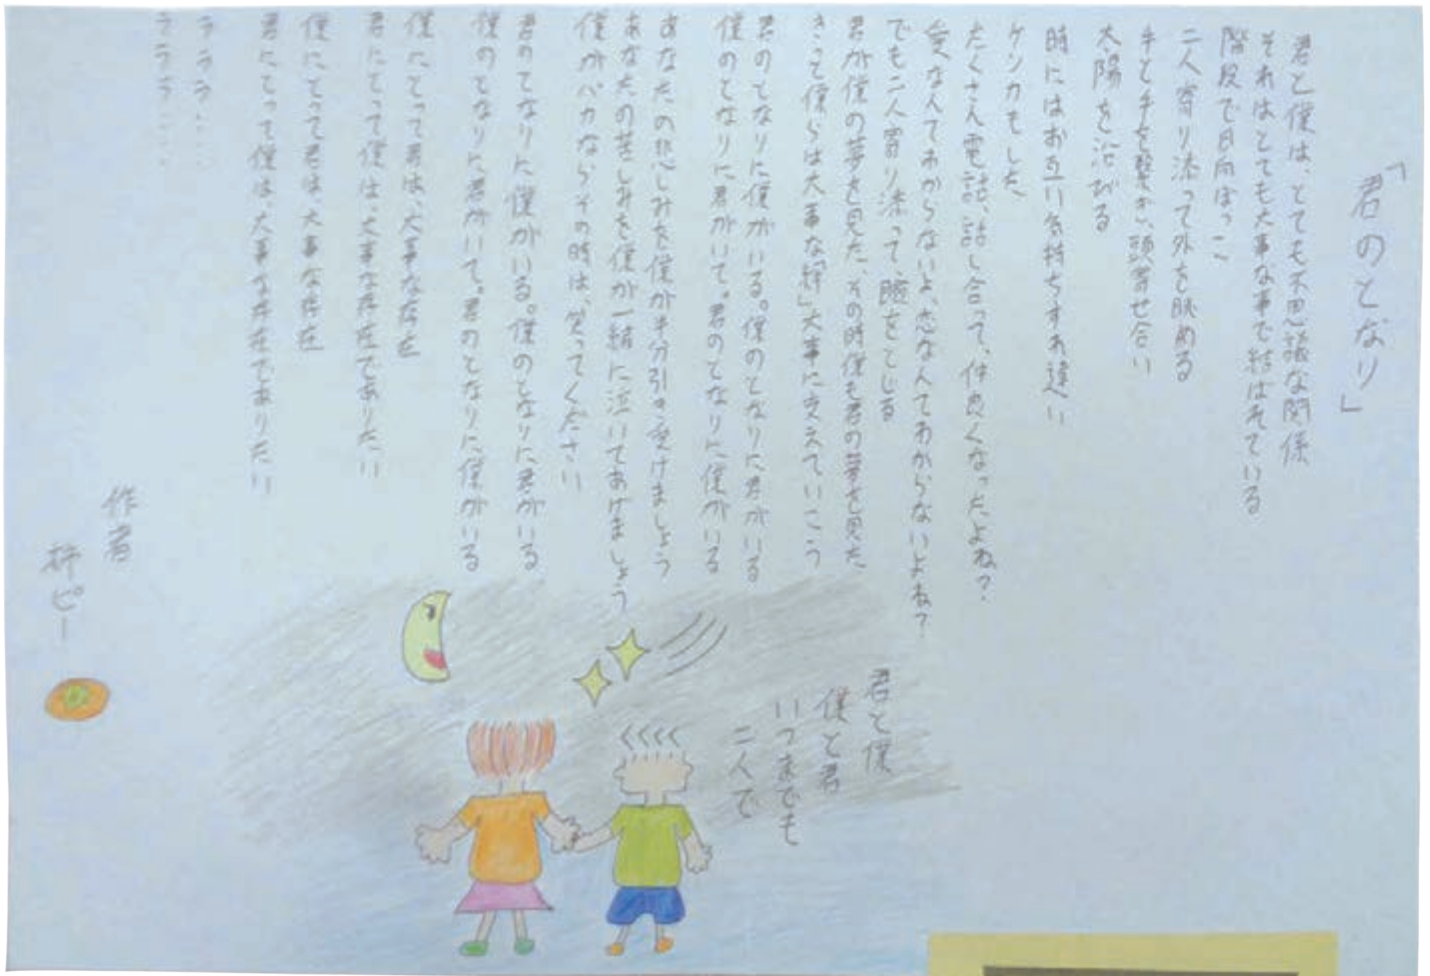 「君のとなり」
君と僕は、とても不思議な関係
それはとても大事な事で結ばれている
階段で日向ぼっこ
二人寄り添って外を眺める
手と手を繋ぎ、頭寄せ合い
太陽を浴びる
時にはお互い気持ちすれ違い
ケンカもした
たくさん電話、話し合って、仲良くなったよね?
愛なんてわからないよ、恋なんてわからないよね?
でも二人寄り添って、瞳をとじる
君が僕の夢を見た、その時僕も君の夢を見た
きっと僕らは大事な「絆」大事に支えていこう
君のとなりに僕がいる。僕のとなりに君がいる
僕のとなりに君がいて。君のとなりに僕がいる
あなたの悲しみを僕が半分引き受けましょう
あなたの苦しみを僕が一緒に泣いてあげましょう
僕がバカならその時は、笑ってください
君のとなりに僕がいる。僕のとなりに君がいる
僕のとなりに君がいて。君のとなりに僕がいる
僕にとって君は、大事な存在
君にとって僕は、大事な存在でありたい
僕にとって君は、大事な存在
君にとって僕は、大事な存在でありたい
ラララ……
ラララ……
作者
柿ピー
君と僕
僕と君
いつまでも
二人で